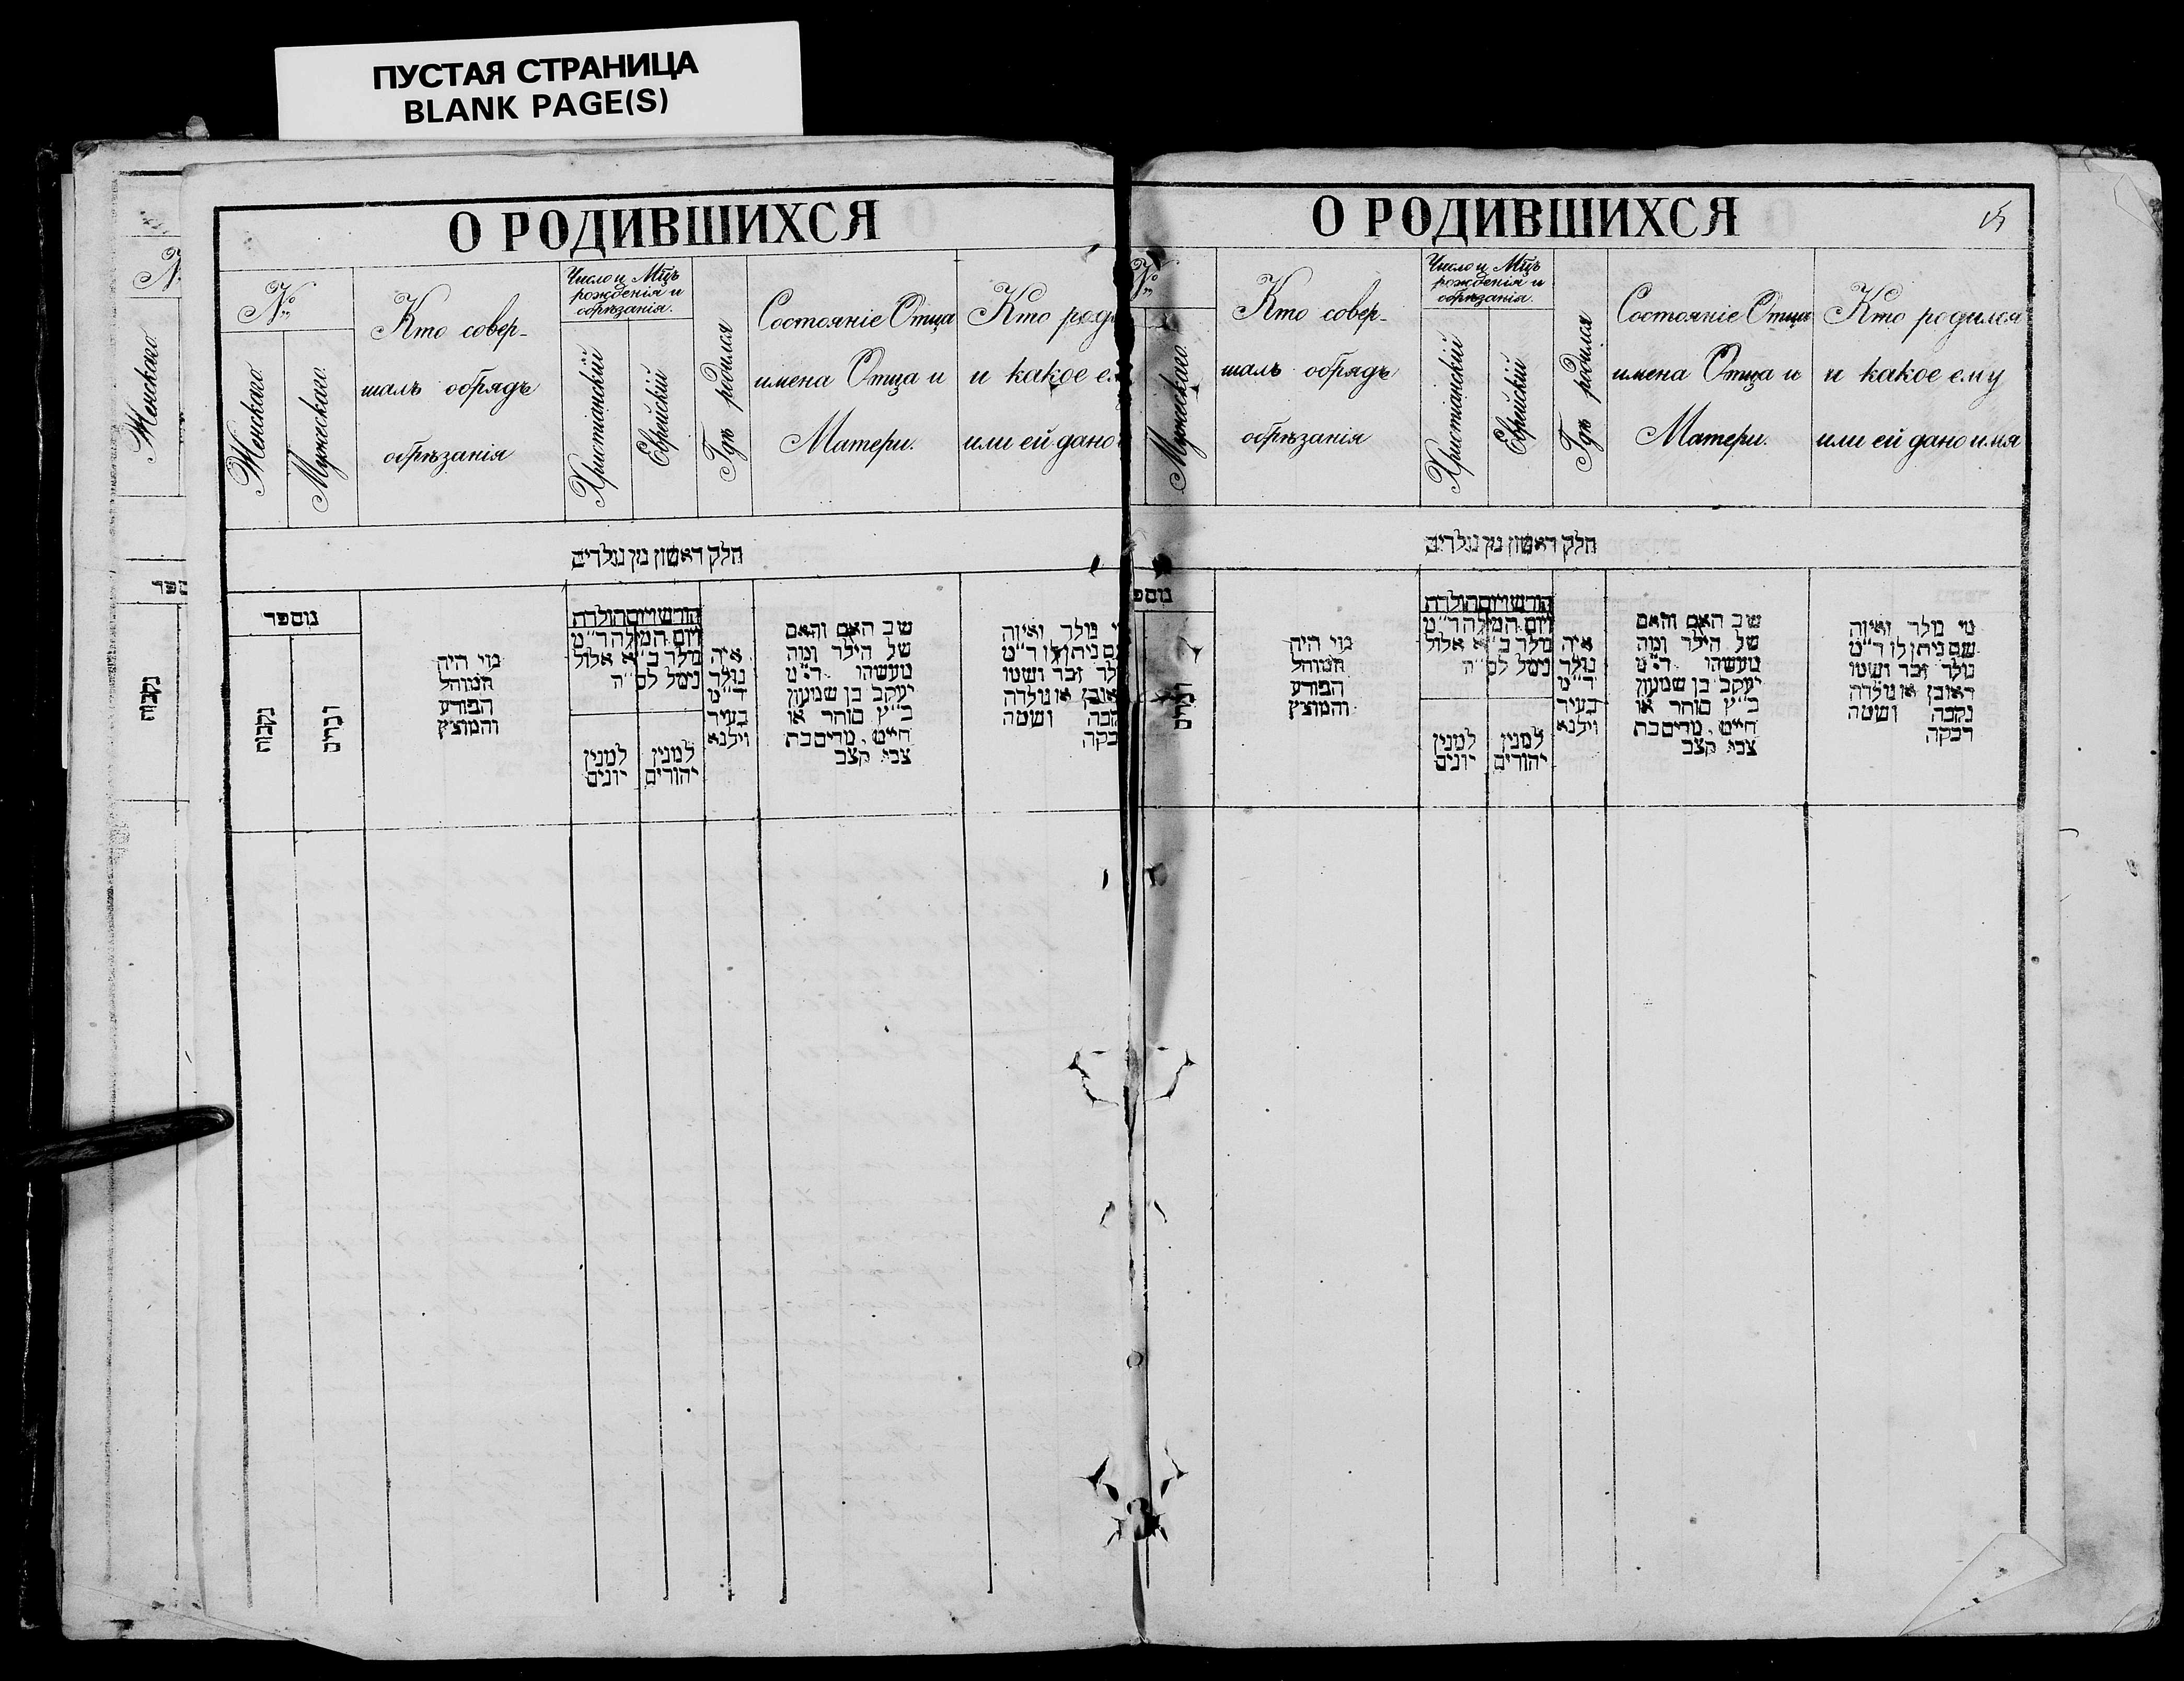 ПУСТАЯ СТРАНИЦА
BLANK PAGE(S)
О РОДИВШИХСЯ
№
Женскаго.
Мужескаго.
Кто совер-
шалъ обрядъ
обрѣзанія
Число и Мцъ
рожденія и
обрѣзанія.
Христіанскій
Еврейскій
Гдѣ родился
Состояніе Отца
имена Отца и
Матери.
Кто роди
и какое ем
или ей дано
חלק ראשון מן נולדים
נומפר
נקבות
זכרים
מי היה
המוהל
הפורע
והמוצץ
חודש ויום הולדת
ויום המילה ד"מ
נולד כ"א אלול
נימל לס"ה
למנין
יונים
למנין
יהודים
איה
נולד
ד"מ
בעיר
וילנא
שב האם והאם
של הילד ומה
מעשהו ד"מ
יעקב בן שמעון
כ"ץ סוחר או
חייט, מרים בת
צבי קצב
מי נולד ואיזה
שם ניתן לו ד"מ
נולד זכר ושמו
ראובן או נולדה
נקבה ושמה
רבקה
О РОДИВШИХСЯ
№
Мужескаго.
Кто совер-
шалъ обрядъ
обрѣзанія
Число и Мцъ
рожденія и
обрѣзанія.
Христіанскій
Еврейскій
Гдѣ родился
Состояніе Отца
имена Отца и
Матери.
Кто родился
и какое ему
или ей дано имя
חלק ראשון מן נולדים
נומפ
זכרים
מי היה
המוהל
הפורע
והמוצץ
חודש ויום הולדת
ויום המילה ד"מ
נולד כ"א אלול
נימל לס"ה
למנין
יונים
למנין
יהודים
איה
נולד
ד"מ
בעיר
וילנא
שב האם והאם
של הילד ומה
מעשהו ד"מ
יעקב בן שמעון
כ"ץ סוחר או
חייט, מרים בת
צבי קצב
מי נולד ואיזה
שם ניתן לו ד"מ
נולד זכר ושמו
ראובן או נולדה
נקבה ושמה
רבקה
Женскаго
נקבות